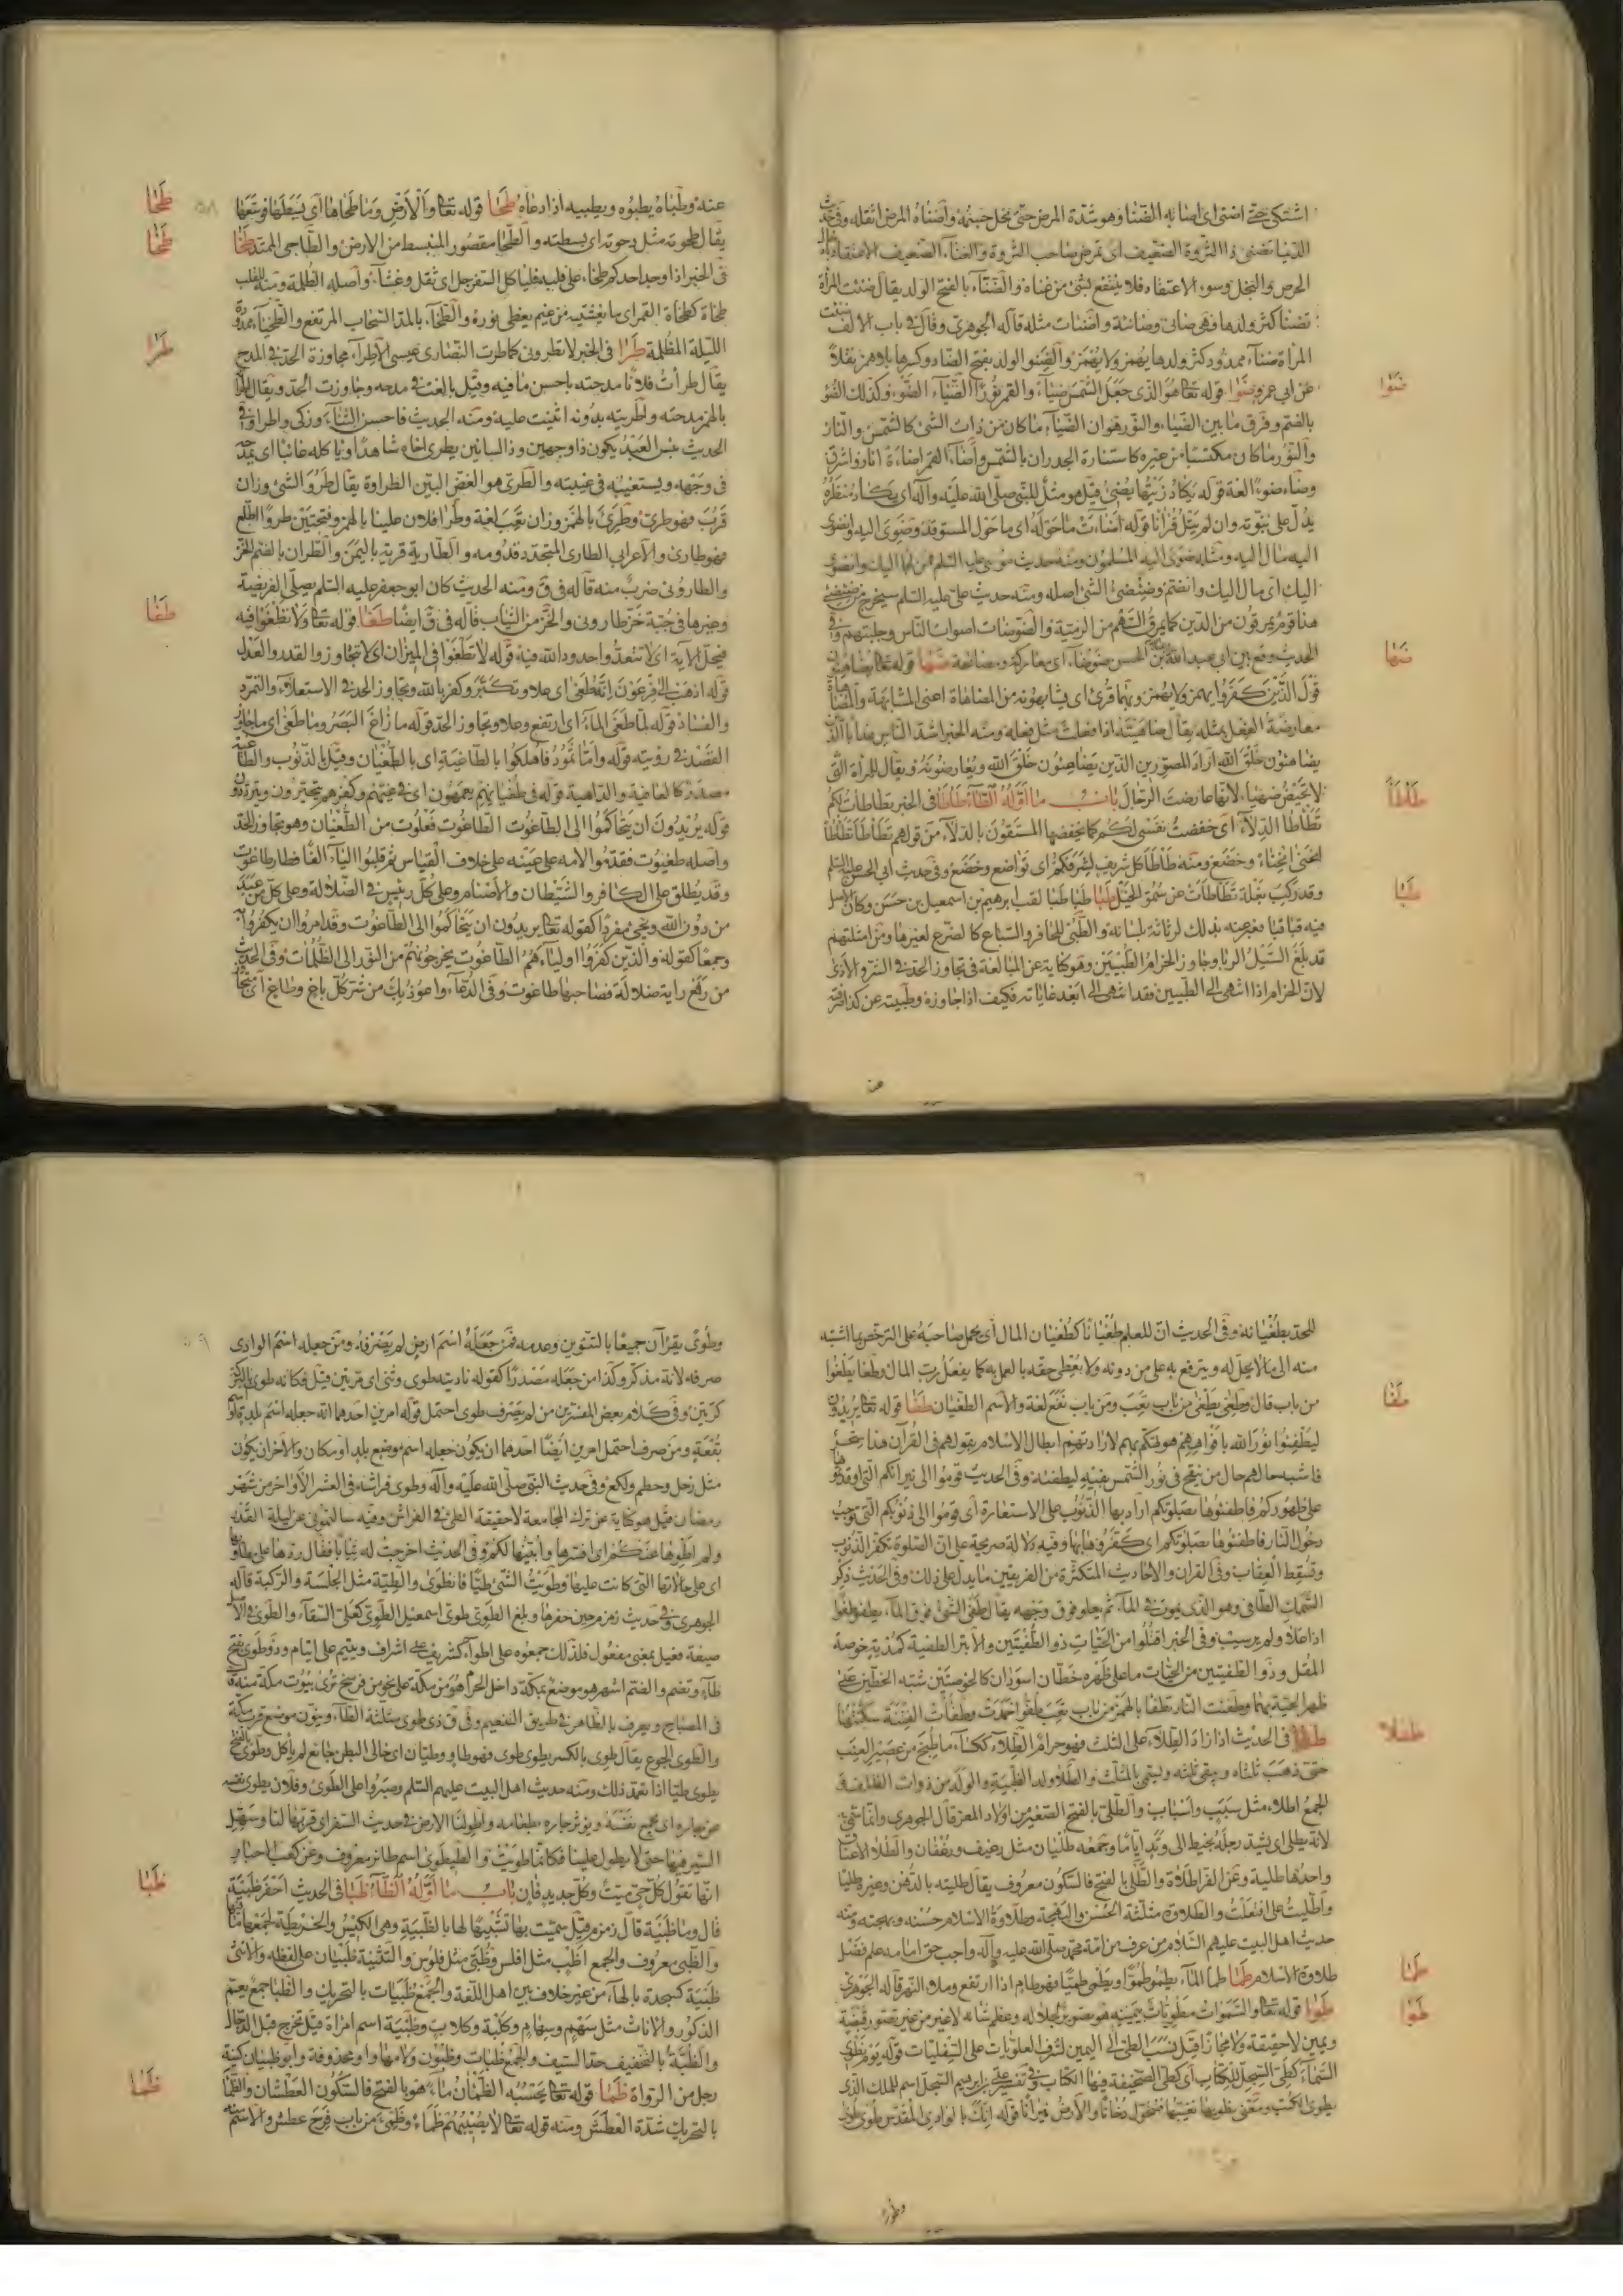 اشتكى حتى اضنى اى اصابه الضنا وهو شدة المرض حتى نحل جسمه واضناه المرض اثقله وفى حديث
الدنيا تضنى ذا الثروة الضعيف اى تمرض صاحب الثروة والغناء الضعيف الاعتقاد
الحرص والبخل وسوء الاعتقاد فلا ينتفع بشئ من غناه والضناء بالفتح الولد يقال ضنئت المرأة
تضنأ كثر ولدها فهى ضانى وضانئة واضنات مثله قاله الجوهرى وقال فى باب الالف ضنت
المرأة ضناء ممدود كثر ولدها يهمز ولا يهمز والضنو الولد بفتح الضاد وكسرها بلا همز نقلا
عن ابى عمرو ضوا قوله تعالى هو الذى جعل الشمس ضياء والقمر نورا الضياء الضوء وكذلك الضوء
ضوا
بالضم وفرق ما بين الضياء والنور هو ان الضياء ما كان من ذات الشئ كالشمس والنار
والنور ما كان مكتسبا من غيره كاستنارة الجدران بالشمس واضاء القمر اضاءة انار واشرق
وضاء ضوءا لغة قوله يكاد زيتها يضئ قيل هو مثل للنبى صلى الله عليه وآله اى يكاد منظره
يدل على نبوته وان لم يتل قرآنا قوله اضاءت ما حوله اى ما حول المستوقد وضوى اليه وانضوى
اليه مال اليه ومثله ضوى اليه المسلمون ومنه حديث موسى عليه السلم من لجا اليك وانضوى
اليك اى مال اليك وانضم وضئضئ الشئ اصله ومنه حديث على عليه السلم سيخرج من ضئضئ
هذا قوم يمرقون من الدين كما يمرق السهم من الرمية والضوضات اصوات الناس وجلبتهم وفى
الحديث وقع بين ابى عبد الله وبين الحسن ضوضاء اى معاركة ضها قوله تعالى يضاهئون
ضها
قول الذين كفروا يهمز ولا يهمز وبهما قرئ اى يشابهونه من المضاهاة اعنى المشابهة والمضاهاة
معارضة الفعل بمثله يقال ضاهيته اذا فعلت مثل فعله ومنه الخبر اشد الناس عذابا الذين
يضاهئون خلق الله اراد المصورين الذين يضاهئون خلق الله ويعارضونه ويقال للمرأة التى
لا تحيض ضهيا لانها عارضت الرجال باب ما اوله الطاء طاطا فى الخبر تطاطات لكم
طاطا
تطاطا الدلاء اى خفضت نفسى لكم كما يخفضها المستقون بالدلاء من قولهم تطاطا تطاطا
انحنى انحناء وخضع ومنه طاطا كل شريف لشرفكم اى تواضع وخضع وفى حديث ابى الحسن عليه السلم
وقد ركب بغلة تطاطات عن سمو الخيل طبا طبا طبا لقب ابرهيم بن اسمعيل بن حسن وكان
طبا
فيه قبا قبا فغيرته بذلك لرثاثة بلسانه والطبى للحافر والسباع كالضرع لغيرها ومن امثلتهم
قد بلغ السيل الربا وجاوز الحزام الطبيين وهو كناية عن المبالغة فى تجاوز الحد فى الشر والاذى
لان الحزام اذا انتهى الى الطبيين فقد انتهى الى ابعد غاياته فكيف اذا جاوزه وطبيته عن كذا
عنه
عنه وطباه يطبوه ويطبيه اذا دعاه طحا قوله تعالى والارض وما طحاها اى بسطها فوسعها
طحا
يقال طحوته مثل دحوته اى بسطته والطحا مقصور المنبسط من الارض والطاحى الممتد طخا
طخا
فى الخبر اذا وجد احدكم طخاء على قلبه فلياكل السفرجل اى ثقل وغشاء واصله الظلمة ومنه للقلب
طخاة كطخاة القمر اى ما يغشيه من غيم يغطى نوره والطخاء بالمد السحاب المرتفع والطخياء ممدودة
الليلة المظلمة طرا فى الخبر لا تطرونى كما اطرت النصارى عيسى الاطراء مجاوزة الحد فى المدح
طرا
يقال طرأت فلانا مدحته باحسن ما فيه وقيل بالغت فى مدحه وجاوزت الحد ويقال
بالهمز مدحته واطريته بدونه اثنيت عليه ومنه الحديث فاحسن الثناء وزكى واطرا وفى
الحديث بئس العبد يكون ذا وجهين وذا لسانين يطرى اخاه شاهدا وياكله غائبا اى يمدحه
فى وجهه ويستعيبه فى غيبته والطرى هو الغض البين الطراوة يقال طرو الشئ وزان
قرب فهو طرى وطرئ بالهمز وزان تعب لغة وطرأ فلان علينا بالهمز وفتحتين طروءا اطلع
فهو طارئ والاعرابى الطارى المتجدد قدومه والطارية قرية باليمن والطرن بالضم الخز
والطارونى ضرب منه قاله فى ق ومنه الحديث كان ابو جعفر عليه السلم يصلى الفريضة
وغيرها فى جبة خز طارونى والخز من الثياب قاله فى ق ايضا طغا قوله تعالى ولا تطغوا فيه
طغا
فيحل الاية اى لا تتعدوا حدود الله فيه قوله لا تطغوا فى الميزان اى لا تتجاوزوا القدر والعدل
قوله اذهب الى فرعون انه طغى اى علا وتكبر وكفر بالله وتجاوز الحد فى الاستعلاء والتمرد
والفساد قوله لما طغى الماء اى ارتفع وعلا وتجاوز الحد قوله ما زاغ البصر وما طغى اى ما جاوز
القصد فى رويته قوله واما ثمود فاهلكوا بالطاغية اى بالطغيان وقيل بالذنوب والطاغية
مصدر كالعافية والداهية قوله فى طغيانهم يعمهون اى فى غيهم وكفرهم يتحيرون ويترددون
قوله يريدون ان يتحاكموا الى الطاغوت الطاغوت فعلوت من الطغيان وهو تجاوز الحد
واصله طغيوت فقدموا لامه على عينه على خلاف القياس ثم قلبوا الياء الفا فصار طاغوت
وقد يطلق على الكافر والشيطان والاصنام وعلى كل رئيس فى الضلالة وعلى كل من عبد
من دون الله ويجئ مفردا كقوله تعالى يريدون ان يتحاكموا الى الطاغوت وقد امروا ان يكفروا به
وجمعا كقوله والذين كفروا اولياءهم الطاغوت يخرجونهم من النور الى الظلمات وفى الحديث
من رفع راية ضلالة فصاحبها طاغوت وفى الدعاء واعوذ بك من شر كل باغ وطاغ اى
للحد بطغيانه وفى الحديث ان للعلم طغيانا كطغيان المال اى يحمل صاحبه على الترخص بما اشتبه
منه الى ما لا يحل له ويترفع به على من دونه ولا يعطى حقه بالعمل به كما يفعل رب المال وطغا يطغوا
من باب قال وطغى يطغى من باب تعب ومن باب نفع لغة والاسم الطغيان طفا قوله تعالى يريدون
طفا
ليطفئوا نور الله بافواههم هو تهكم بهم لارادتهم ابطال الاسلام بقولهم فى القرآن هذا سحر
فاشبه حالهم حال من ينفخ فى نور الشمس بفيه ليطفئه وفى الحديث قوموا الى نيرانكم التى اوقدتموها
على ظهوركم فاطفئوها بصلوتكم اراد بها الذنوب على الاستعارة اى قوموا الى ذنوبكم التى توجب
دخول النار فاطفئوها بصلوتكم اى كفروها بها وفيه دلالة صريحة على ان الصلوة تكفر الذنوب
وتسقط العقاب وفى القران والاحاديث المتكثرة من الفريقين ما يدل على ذلك وفى الحديث ذكر
السمك الطافى وهو الذى يموت فى الماء ثم يعلو فوق وجهه يقال طفى الشئ فوق الماء يطفو طفوا
اذا علا ولم يرسب وفى الخبر اقتلوا من الحيات ذو الطفيتين والابتر الطفية كمدية خوصة
المقل وذو الطفيتين من الحيات ما على ظهره خطان اسودان كالخوصتين شبه الخطين على
ظهر الحية بهما وطفئت النار تطفا بالهمز من باب تعب طفوا خمدت وطفأت الفتنة سكنتها
طلا فى الحديث اذا زاد الطلاء على الثلث فهو حرام الطلاء ككساء ما طبخ من عصير العنب
طلا
حتى ذهب ثلثاه وبقى ثلثه ويسمى بالمثلث والطلا ولد الظبية والولد من ذوات الظلف ق
الجمع اطلاء مثل سبب واسباب والطلى بالفتح الصغير من اولاد المعز قال الجوهرى وانما سمى
لانه يطلى اى يشد رجله بخيط الى وتد اياما وجمعه طليان مثل رغيف ورغفان والطلا الاعناق
واحدها طلية وعن الفرا طلاة والطلى بالفتح فالسكون معروف يقال طليته بالدهن وغيره طليا
واطليت على افتعلت والطلاوة مثلثة الحسن والبهجة وطلاوة الاسلام حسنه وبهجته ومنه
حديث اهل البيت عليهم السلام من عرف من امة محمد صلى الله عليه وآله واجب حق امامه علم فضل
طلاوة الاسلام طما طما الماء يطمو طموا ويطمى طميا فهو طام اذا ارتفع وملا النهر قاله الجوهرى
طما
طوا قوله تعالى والسموات مطويات بيمينه هو تصوير لجلاله وعظم شانه لا غير من غير تصور قبضة
طوا
ويمين لا حقيقة ولا مجازا قيل نسب الطى الى اليمين لشرف العلويات على السفليات قوله يوم نطوى
السماء كطى السجل للكتاب اى كطى الصحيفة فيها الكتاب وفى تفسير على بن ابرهيم السجل اسم للملك الذى
يطوى الكتب ومعنى يطويها يفنيها فتتحول دخانا والارض نيرانا قوله انك بالوادى المقدس طوى طوى
وطوى
وطوى يقرآن جميعا بالتنوين وعدمه فمن جعله اسم ارض لم يصرفه ومن جعله اسم الوادى
صرفه لانه مذكر وكذا من جعله مصدرا كقوله ناديته طوى وثنى اى مرتين قيل فكانه طوى بالبركة
كرتين وفى كلام بعض المفسرين من لم يصرف طوى احتمل قوله امرين احدهما انه جعله اسم بلدة او
بقعة ومن صرف احتمل امرين ايضا احدهما ان يكون جعله اسم موضع بلد او مكان والاخر ان يكون
مثل زحل وحطم ولكع وفى حديث النبى صلى الله عليه وآله وطوى فراشه فى العشر الاواخر من شهر
رمضان قيل هو كناية عن ترك المجامعة لا حقيقة الطى فى الفراش وفيه سالتمونى عن ليلة القدر
ولم اطوها عنكم اى افترها وابتيها لكم وفى الحديث اخرجت له ثيابا فقال ردها على مطاويها
اى على حالاتها التى كانت عليها وطويت الشئ طيا فانطوى والطية مثل الجلسة والركبة قاله
الجوهرى وفى حديث زمزم حين حفرها وبلغ الطوى طوى اسمعيل الطوى كعلى السقاء والطوى فى الاصل
صيغة فعيل بمعنى مفعول فلذلك جمعوه على اطواء كشريف على اشراف ويتيم على ايتام وذو طوى بفتح
طاء وتضم والضم اشهر هو موضع بمكة داخل الحرم هو من مكة على نحو من فرسخ ترى بيوت مكة منه قال
فى المصباح ويعرف بالظاهر فى طريق التنعيم وفى ق ذى طوى مثلثة الطاء وينون موضع قرب مكة
والطوى الجوع يقال طوى بالكسر يطوى طوى فهو طاو وطيان اى خالى البطن جائع لم ياكل وطوى بالفتح
يطوى طيا اذا تعمد ذلك ومنه حديث اهل البيت عليهم السلم وصبروا على الطوى وفلان يطوى نفسه
عن جاره اى يجيع نفسه ويؤثر جاره بطعامه واطو لنا الارض فى حديث السفر اى قربها لنا وسهل
السير فيها حتى لا يطول علينا فكانها طويت والطيطوى اسم طائر معروف وعن كعب الاحبار
انها تقول كل حى ميت وكل جديد فان باب ما اوله الظاء ظبا فى الحديث احفر ظبية
ظبا
قال وما ظبية قال زمزم قيل سميت بها تشبيها لها بالظبية وهى الكيس والخريطة لجمعها ما فيها
والظبى معروف والجمع اظب مثل افلس وظبى مثل فلوس والتثنية ظبيان على لفظه والانثى
ظبية كسجدة بالهاء من غير خلاف بين اهل اللغة والجمع ظبيات بالتحريك والظبا جمع يعم
الذكور والاناث مثل سهم وسهام وكلبة وكلاب وظبية اسم امراة قيل تخرج قبل الدجال
والظبة بالتخفيف حد السيف والجمع ظبات وظبون ولامها واو محذوفة وابو ظبيان كنية
رجل من الرواة ظما قوله تعالى يحسبه الظمآن ماء هو بالفتح فالسكون العطشان والظما
ظما
بالتحريك شدة العطش ومنه قوله تعالى لا يصيبهم ظماء وظمئ من باب فرح عطش والاسم منه